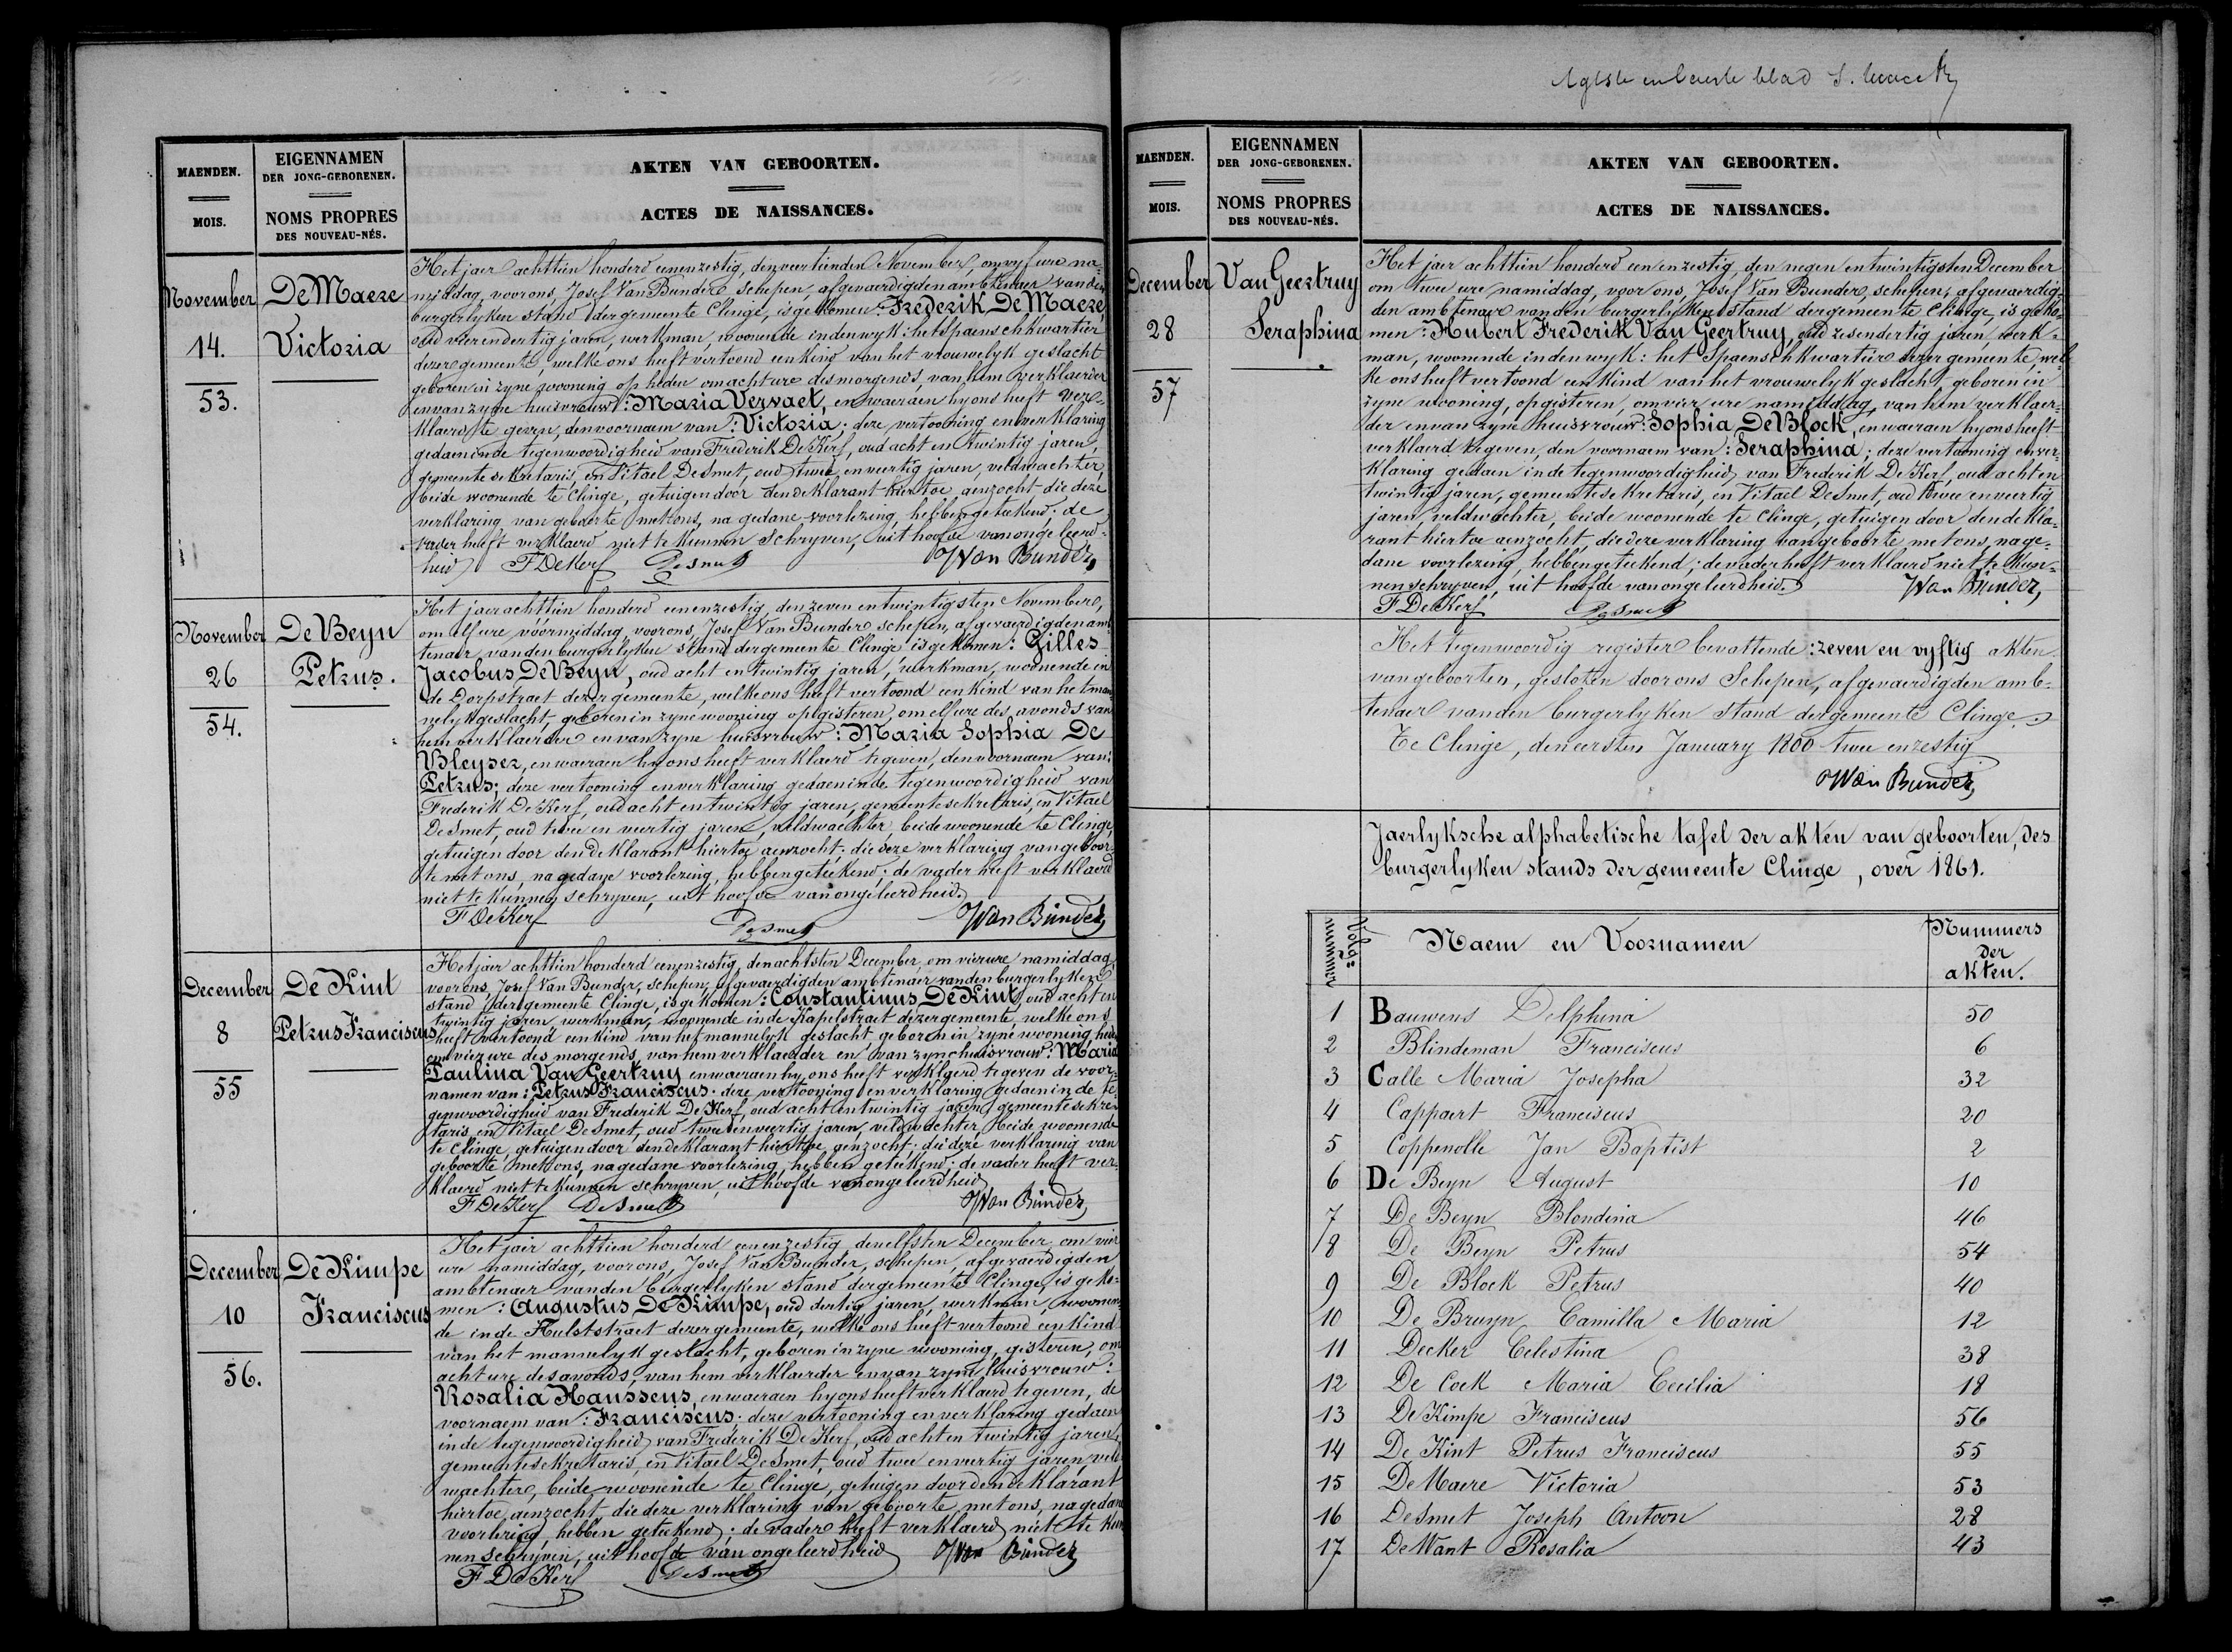 MAENDEN.
MOIS.
EIGENNAMEN
DER JONG-GEBORENEN.
NOMS PROPRES
DES NOUVEAU-NÉS.
AKTEN VAN GEBOORTEN.
ACTES DE NAISSANCES.
November
14.
53.
De Maere
Victoria
Het jaer achttien honderd eenenzestig, den veertienden November, om vyf ure na-
middag, voor ons, Josef Van Bunder schepen, afgevaerdigden ambtenaer van den
burgerlyken stand der gemeente Clinge, is gekomen: Frederik De Maere,
oud vierendertig jaren, werkman, woonende in den wyk: het Spaensch kwartier
dezer gemeente, welke ons heeft vertoond een kind van het vrouwelyk geslacht
geboren in zyne wooning op heden om acht ure des morgends, van hem verklaerder
en van zyne huisvrouw: Maria Vervaet, en waeraen hy ons heeft ver-
klaerd te geven, den voornaem van: Victoria; deze vertooning en verklaring
gedaen in de tegenwoordigheid van Frederik De Kerf, oud acht en twintig jaren,
gemeente sekretaris, en Vitael De Smet, oud twee en veertig jaren, veldwachter,
beide woonende te Clinge, getuigen door den deklarant hiertoe aenzocht, die deze
verklaring van geboorte met ons, na gedane voorlezing, hebben geteekend; de
vader heeft verklaerd niet te kunnen schryven, uit hoofde van ongeleerd-
heid
F De Kerf Desmet JVan Bunder,
November
26
54.
De Beyn
Petrus.
Het jaer achttien honderd eenenzestig, den zeven en twintigsten November,
om elf ure voormiddag, voor ons, Josef Van Bunder schepen, afgevaerdigden amb-
tenaer van den burgerlyken stand der gemeente Clinge is gekomen: Gilles
Jacobus De Beyn, oud acht en twintig jaren, werkman, woonende in
de Dorpstraet dezer gemeente, welke ons heeft vertoond een kind van het man-
nelyk geslacht, geboren in zyne wooning op gisteren, om elf ure des avonds van
hem verklaerder en van zyne huisvrouw: Maria Sophia De
Vleyser, en waeraen hy ons heeft verklaerd te geven, den voornaem van:
Petrus; deze vertooning en verklaring gedaen in de tegenwoordigheid van
Frederik De Kerf, oud acht en twintig jaren, gemeente sekretaris, en Vitael
De Smet, oud twee en veertig jaren, veldwachter, beide woonende te Clinge,
getuigen door den deklarant hiertoe aenzocht; die deze verklaring van geboor-
te met ons, na gedane voorlezing, hebben geteekend; de vader heeft verklaerd
niet te kunnen schryven, uit hoofde van ongeleerdheid.
F De Kerf Desmet JVan Bunder,
December
8
55
De Kint
Petrus Franciscus
Het jaer achttien honderd eenenzestig, den achtsten December, om vier ure namiddag,
voor ons, Josef Van Bunder, schepen, afgevaerdigden ambtenaer van den burgerlyken
stand der gemeente Clinge, is gekomen: Constantinus De Kint, oud acht en
twintig jaren, werkman, woonende in de Kapelstraet dezer gemeente, welke ons
heeft vertoond een kind van het mannelyk geslacht, geboren in zyne wooning, heden
om vier ure des morgends, van hem verklaerder en van zyne huisvrouw: Maria
Paulina Van Geertruy en waeraen hy ons heeft verklaerd te geven de voor-
namen van: Petrus Franciscus; deze vertooning en verklaring gedaen in de te-
genwoordigheid van Frederik De Kerf, oud acht en twintig jaren, gemeente sekre-
taris, en Vitael De Smet, oud twee en veertig jaren, veldwachter, beide woonende
te Clinge, getuigen door den deklarant hiertoe aenzocht; die deze verklaring van
geboorte met ons, na gedane voorlezing, hebben geteekend; de vader heeft ver-
klaerd niet te kunnen schryven, uit hoofde van ongeleerdheid
F De Kerf Desmet JVan Bunder,
December
10
56.
De Kimpe
Franciscus
Het jaer achttien honderd eenenzestig, den elfsten December, om vier
ure namiddag, voor ons, Josef Van Bunder, schepen, afgevaerdigden
ambtenaer van den burgerlyken stand der gemeente Clinge, is geko-
men: Augustus De Kimpe, oud dertig jaren, werkman, woonen-
de in de Hulststraet dezer gemeente, welke ons heeft vertoond een kind
van het mannelyk geslacht, geboren in zyne wooning, gisteren, om
acht ure des avonds, van hem verklaerder en van zyne huisvrouw:
Rosalia Hanssens, en waeraen hy ons heeft verklaerd te geven, de
voornaem van: Franciscus; deze vertooning en verklaring gedaen
in de tegenwoordigheid van Frederik De Kerf, oud acht en twintig jaren,
gemeente sekretaris, en Vitael De Smet, oud twee en veertig jaren, veld-
wachter, beide woonende te Clinge, getuigen door den deklarant
hiertoe aenzocht, die deze verklaring van geboorte met ons, na gedane
voorlezing hebben geteekend; de vader heeft verklaerd niet te kun-
nen schryven, uit hoofde van ongeleerdheid JVan Bunder,
F De Kerf Desmet
blad
MAENDEN.
MOIS.
EIGENNAMEN
DER JONG-GEBORENEN.
NOMS PROPRES
DES NOUVEAU-NÉS.
AKTEN VAN GEBOORTEN.
ACTES DE NAISSANCES.
December
28
57
Van Geertruy
Seraphina
Het jaer achttien honderd een en zestig, den negen en twintigsten December
om twee ure namiddag, voor ons, Josef Van Bunder, schepen, afgevaerdig-
den ambtenaer van den burgerlyken stand der gemeente Clinge, is geko-
men: Hubert Frederik Van Geertruy, oud zesendertig jaren, werk-
man, woonende in den wyk: het Spaensch kwartier dezer gemeente, wel-
ke ons heeft vertoond een kind van het vrouwelyk geslacht, geboren in
zyne wooning, op gisteren, om vier ure namiddag, van hem verklaer-
der en van zyne huisvrouw: Sophia De Block, en waeraen hy ons heeft
verklaerd te geven, den voornaem van: Seraphina; deze vertooning en ver-
klaring gedaen in de tegenwoordigheid van Frederik De Kerf, oud acht en
twintig jaren, gemeente sekretaris, en Vitael De Smet, oud twee en veertig
jaren, veldwachter, beide woonende te Clinge, getuigen door den dekla-
rant hiertoe aenzocht, die deze verklaring van geboorte met ons, na ge-
dane voorlezing, hebben geteekend; de vader heeft verklaerd niet te kun-
nen schryven, uit hoofde van ongeleerdheid. JVan Bunder,
F De Kerf Desmet
Het tegenwoordig register bevattende: zeven en vyftig akten
van geboorten, gesloten door ons Schepen, afgevaerdigden amb-
tenaer van den burgerlyken stand der gemeente Clinge.
Te Clinge, den eersten January 1800 twee en zestig
JVan Bunder,
Jaerlyksche alphabetische tafel der akten van geboorten, des
burgerlyken stands der gemeente Clinge, over 1861.
Volg-
nummer
Naem en Voornamen
Nummers
der
akten.
1 Bauwens Delphina 50
2 Blindeman Franciscus 6
3 Calle Maria Josepha 32
4 Cappaert Franciscus 20
5 Coppenolle Jan Baptist 2
6 De Beyn August 10
7 De Beyn Blondina 46
8 De Beyn Petrus 54
9 De Block Petrus 40
10 De Bruyn Camilla Maria 12
11 Decker Celestina 38
12 De Cock Maria Cecilia 18
13 De Kimpe Franciscus 56
14 De Kint Petrus Franciscus 55
15 De Maere Victoria 53
16 De Smet Joseph Antoon 28
17 De Want Rosalia 43